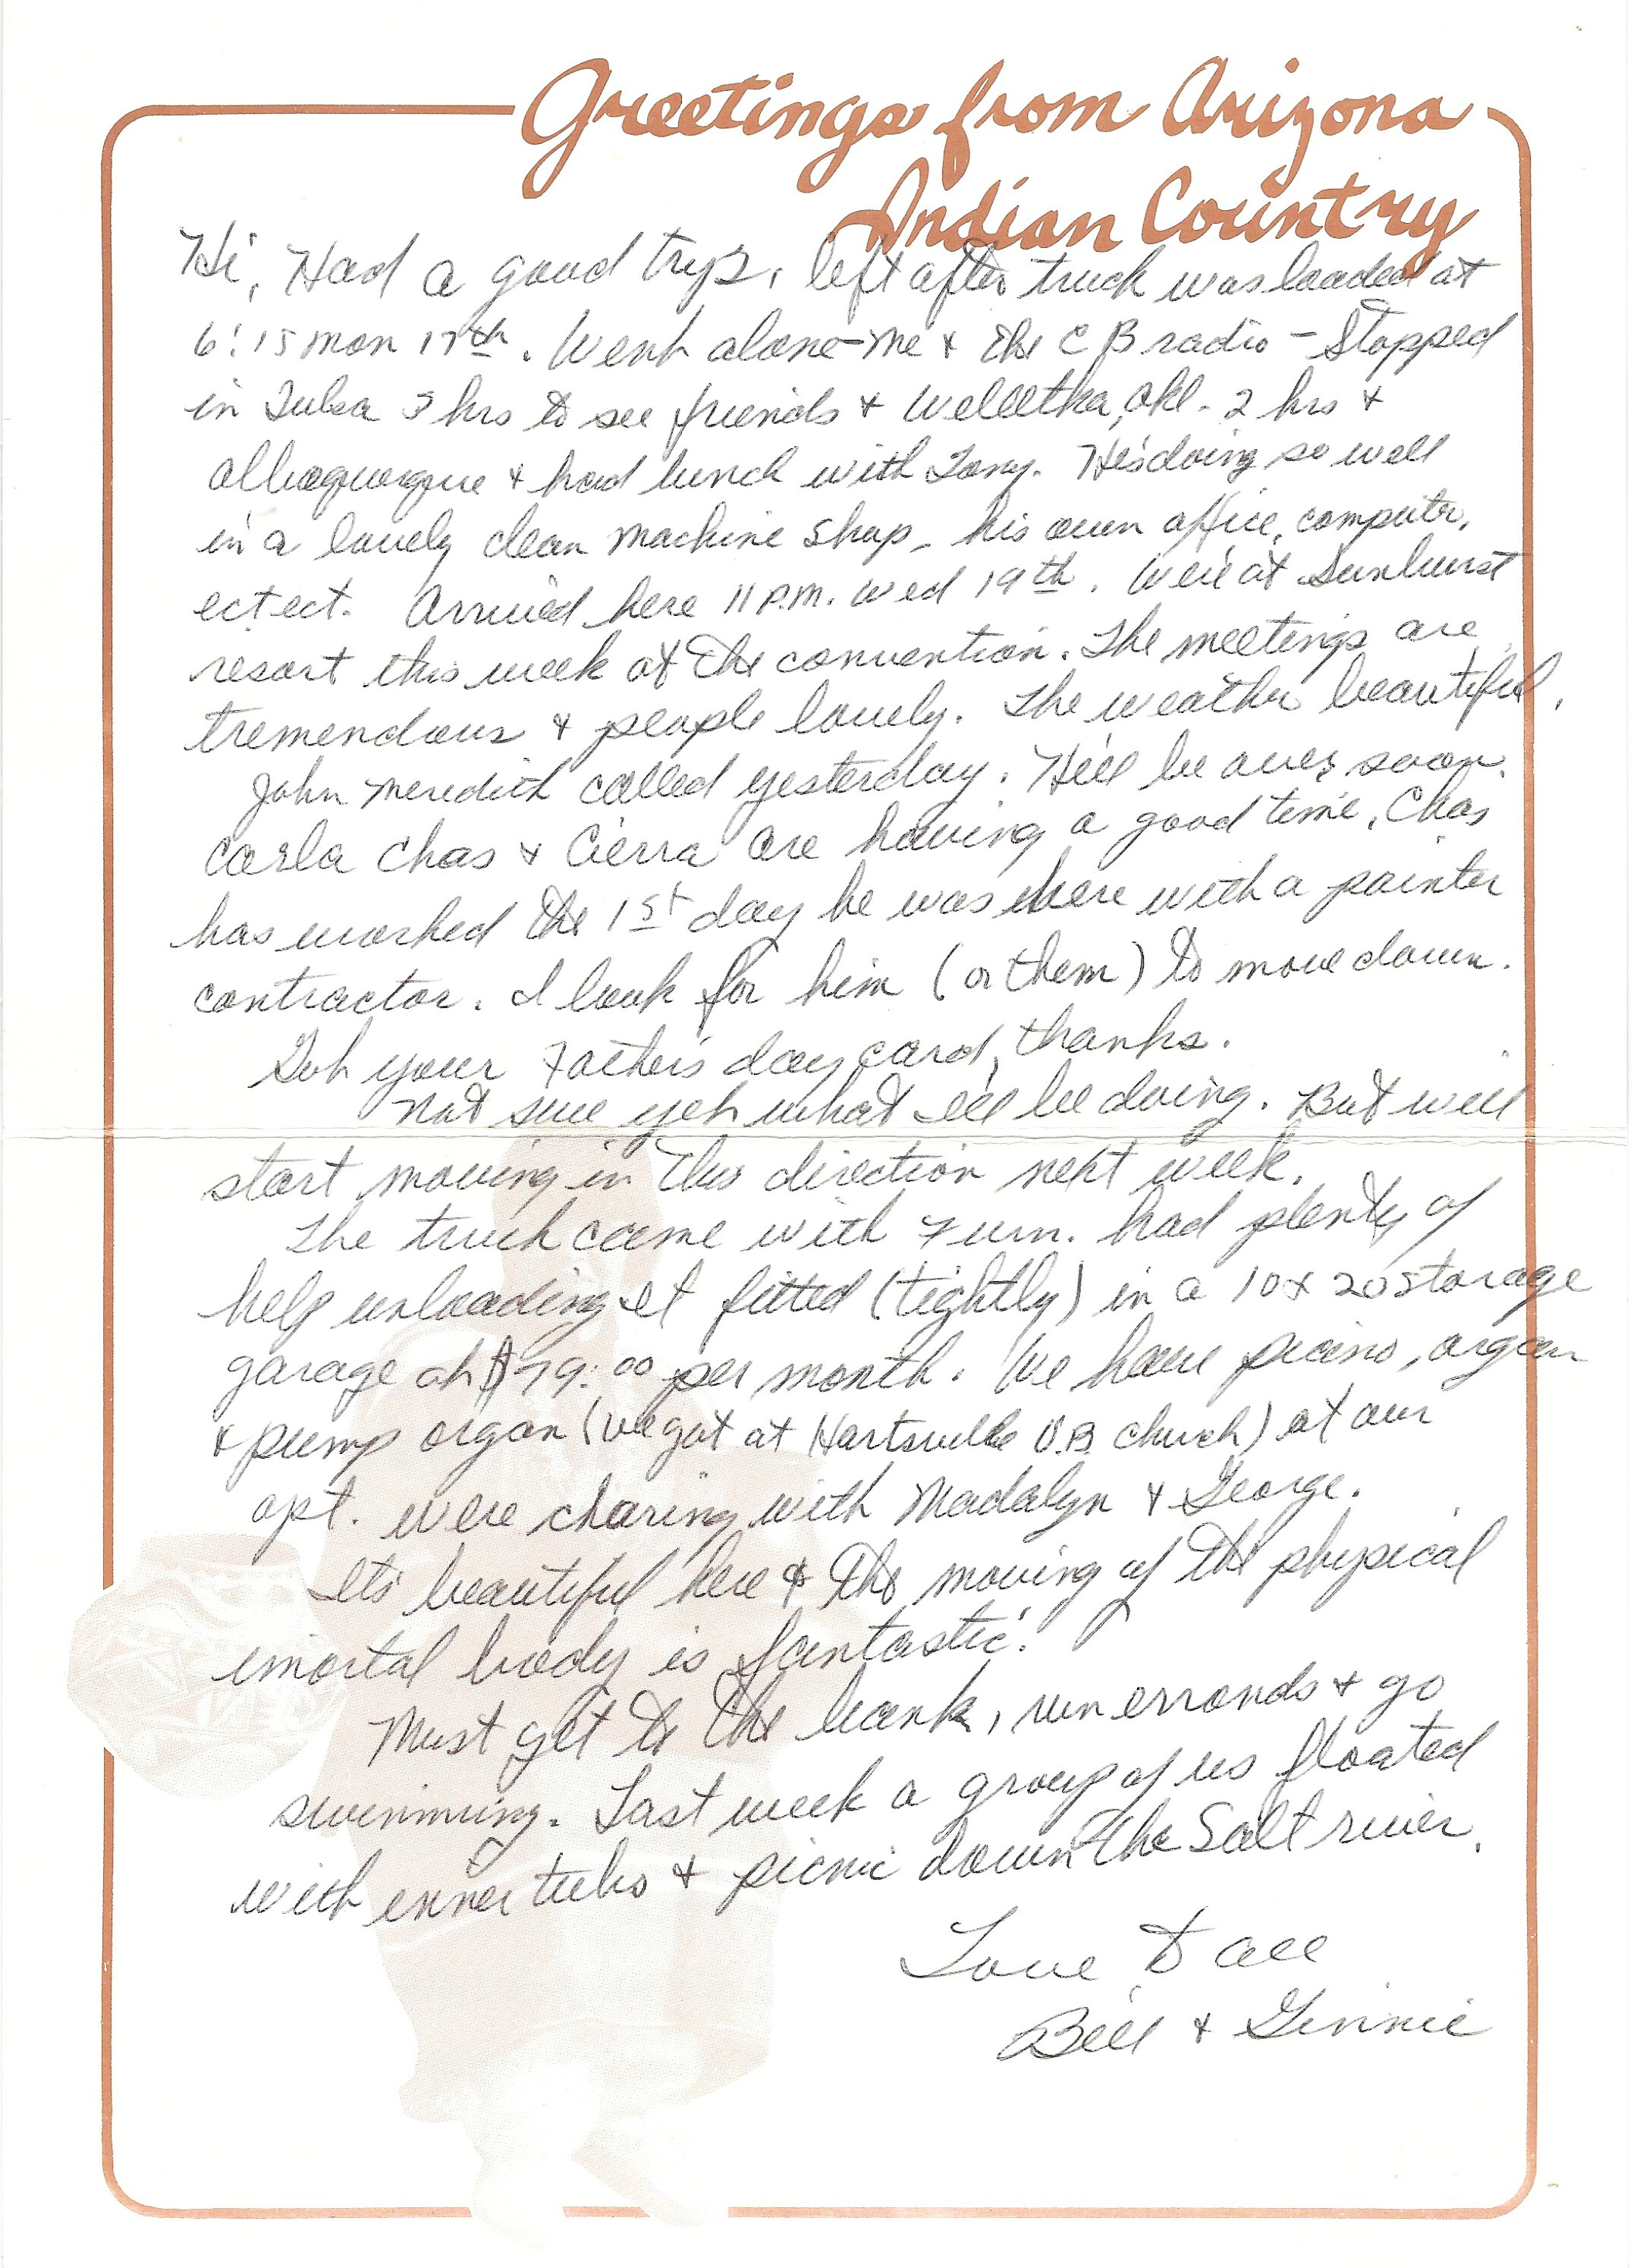 Greetings from Arizona
Indian Country
Hi, Had a good tryp, left after truck was loaded at
6:15 mon 17th. Went alone-me + the CB radio - Stopped
in Tulsa 3 hrs to see friends + Welletka, Okl. 2 hrs +
+ had lunch with Tony. He's doing so well
in a lovely clean machine shop - his own office, computer,
ect ect. Arrived here 11 P.M. Wed 19th. We're at Sunburst
resort this week at the convention. The meetings are
tremendous + people lovely. The weather beautiful.
John Meredith called yesterday. He'll be over soon.
Carla Chas + Cierra are having a good time. Chas
has worked the 1st day he was here with a painter
contractor. I look for him (or them) to move down.
Got your Father's day card, thanks.
Not sure yet what I'll be doing. But will
start moving in this direction next week.
The truck came with Furn. had plenty of
help unloading It fitted (tightly) in a 10x20 storage
garage at $79.00 per month. We have piano, organ
+ pump organ (we got at Hartsville U.B. church) at our
apt. we're charing with Madalyn + George.
Its beautiful here + the moving of the physical
imortal body is fantastic.
Must get to the bank, run erronds + go
swimming. Last week a group of us floated
with inner tubs + picnic down the Salt river.
Love to all
Bill + Ginnie